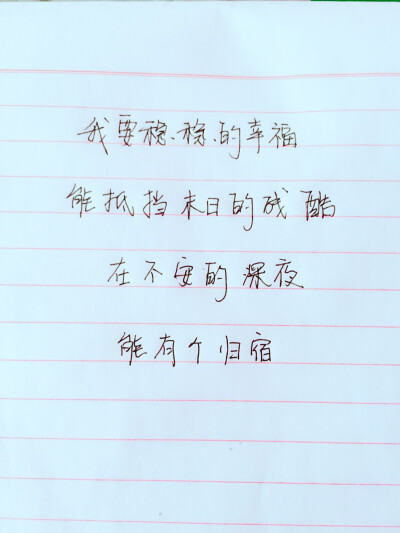 我要稳稳的幸福
能抵挡末日的残酷
在不安的深夜
能有个归宿